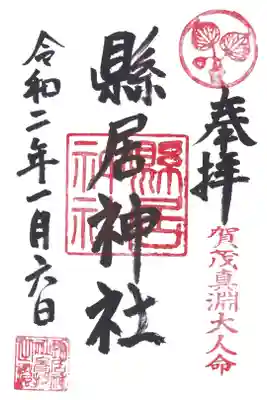 奉拝
賀茂真淵大人命
縣居神社
縣居神社
令和二年一月六日